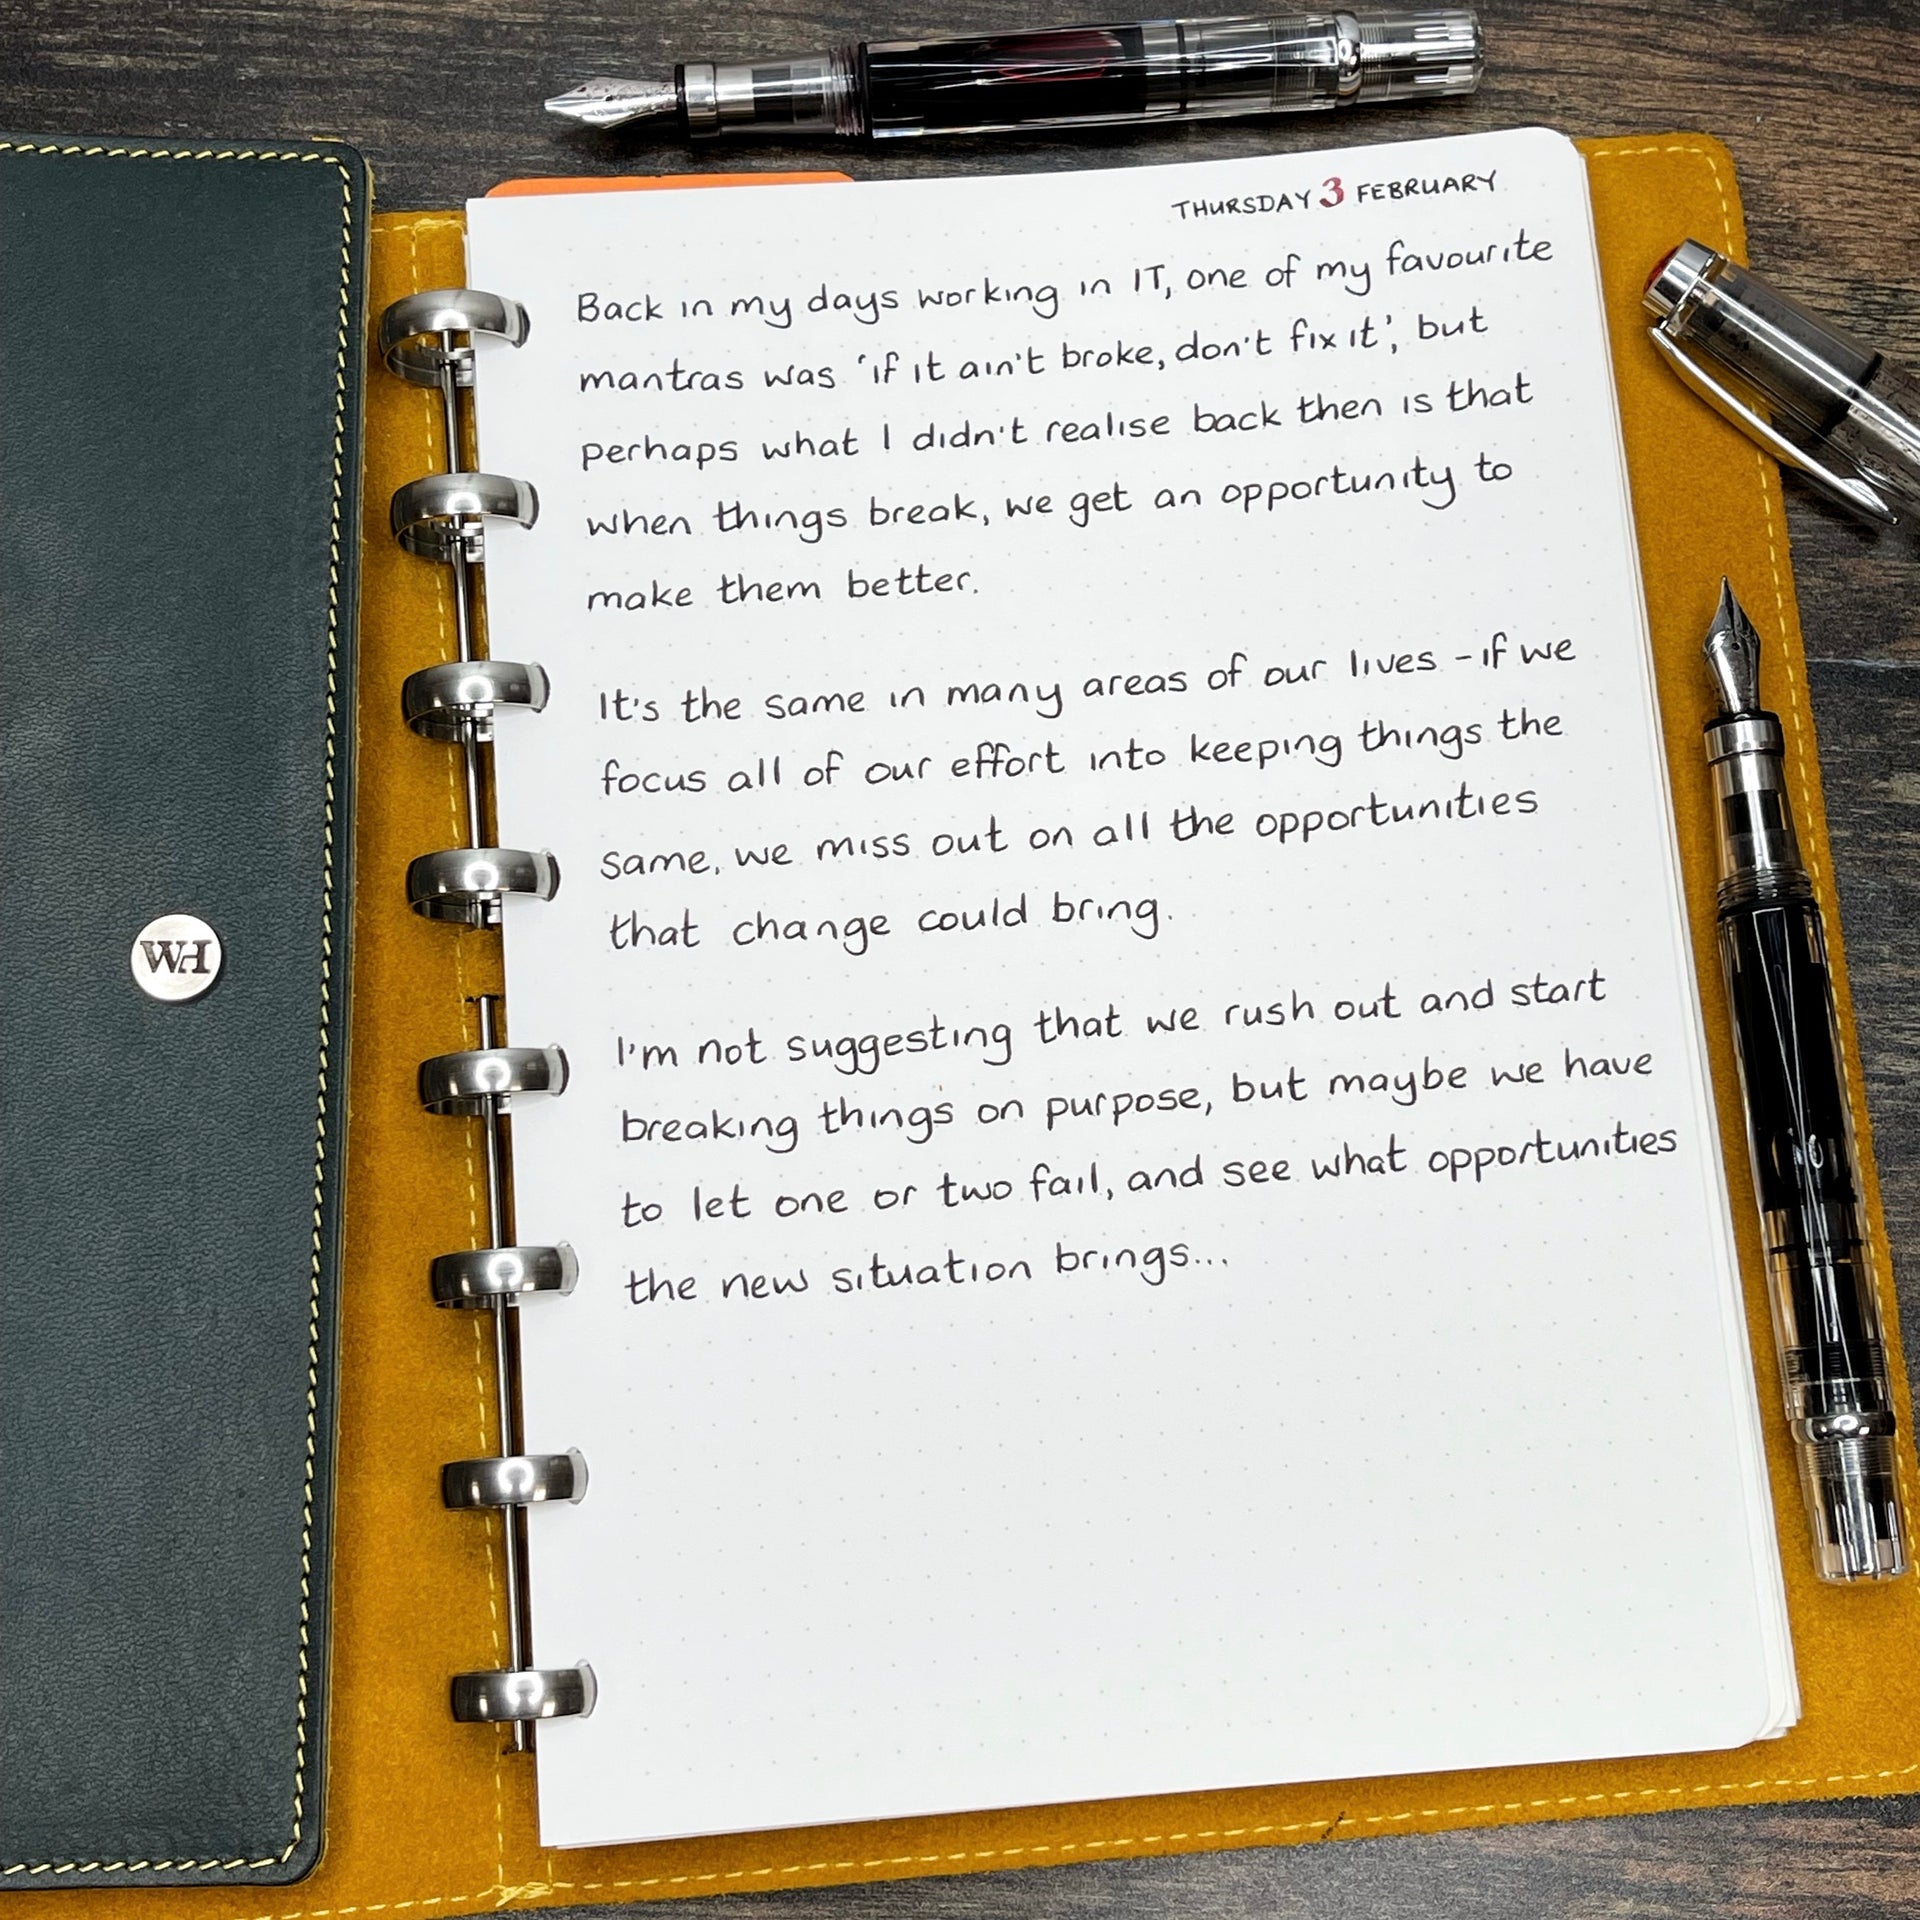 THURSDAY 3 FEBRUARY
Back in my days working in IT, one of my favourite
mantras was 'if it ain't broke, don't fix it', but
perhaps what I didn't realise back then is that
when things break, we get an opportunity to
make them better.
It's the same in many areas of our lives - if we
focus all of our effort into keeping things the
same, we miss out on all the opportunities
that change could bring.
I'm not suggesting that we rush out and start
breaking things on purpose, but maybe we have
to let one or two fail, and see what opportunities
the new situation brings...
WH